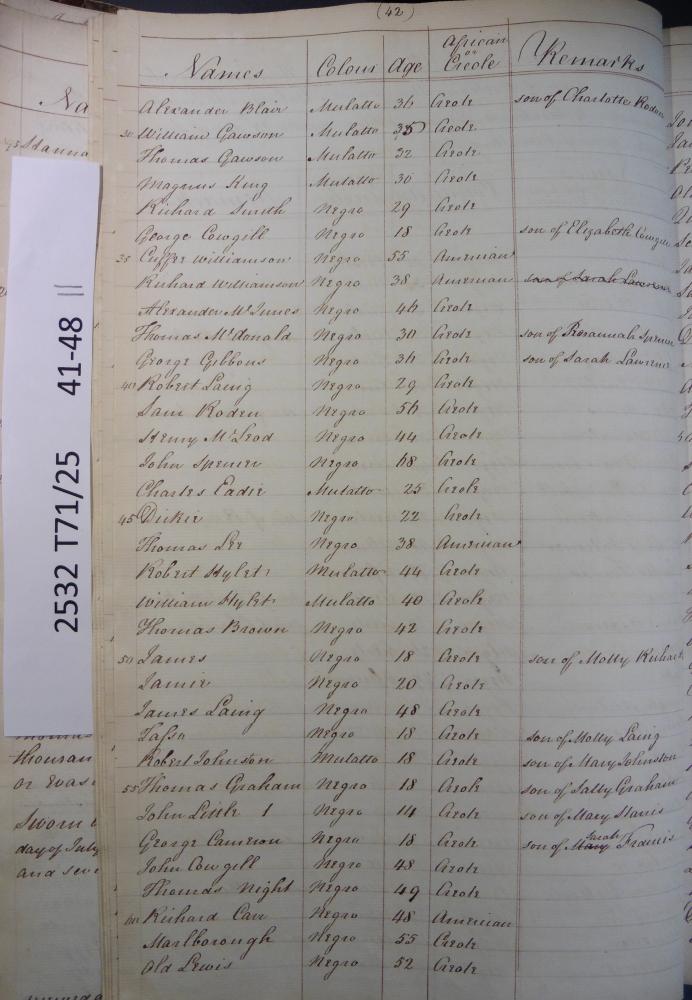 (42)
Names Colour Age African or Creole Remarks
Alexander Blair Mulatto 36 Creole son of Charlotte Roden
30 William Gawson Mulatto 35 Creole
Thomas Gawson Mulatto 32 Creole
Magnus King Mulatto 30 Creole
Richard Smith Negro 29 Creole
George Cowgill Negro 18 Creole son of Elizabeth Cowgill
35 Cuffee Williamson Negro 55 American
Richard Williamson Negro 38 American son of Sarah Lawrence
Alexander McInnes Negro 46 Creole
Thomas McDonald Negro 30 Creole son of Rosannah Spencer
George Gibbons Negro 36 Creole son of Sarah Lawrence
40 Robert Laing Negro 29 Creole
Sam Roden Negro 56 Creole
Henry McLeod Negro 44 Creole
John Spencer Negro 68 Creole
Charles Eadie Mulatto 25 Creole
45 Dickie Negro 22 Creole
Thomas Lee Negro 38 American
Robert Hylet Mulatto 44 Creole
William Hylet Mulatto 40 Creole
Thomas Brown Negro 42 Creole
50 James Negro 18 Creole son of Molly
Jamie Negro 20 Creole
James Laing Negro 48 Creole
Negro 18 Creole son of Molly Laing
Robert Johnson Mulatto 18 Creole son of Mary Johnston
55 Thomas Graham Negro 18 Creole son of Sally Graham
John Little 1 Negro 14 Creole son of Mary
George Cameron Negro 18 Creole son of Mary Sarah Francis
John Cowgill Negro 48 Creole
Thomas Night Negro 49 Creole
60 Richard Carr Negro 48 American
Marlborough Negro 55 Creole
Old Lewis Negro 52 Creole
2532 T71/25 41-48 ||
Na
thousan
or evas
Sworn
day of July
and sev